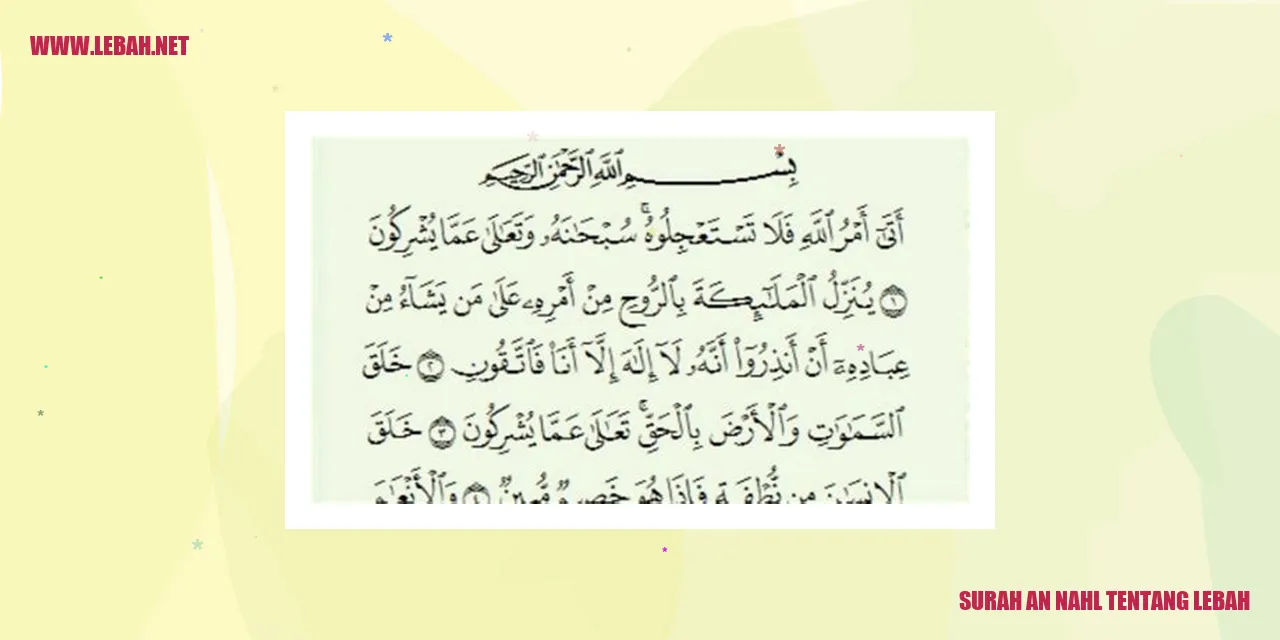 WWW.LEBAH.NET
بِسْمِ ٱللَّهِ ٱلرَّحْمَٰنِ ٱلرَّحِيمِ
أَتَىٰٓ أَمْرُ ٱللَّهِ فَلَا تَسْتَعْجِلُوهُ ۚ سُبْحَـٰنَهُۥ وَتَعَـٰلَىٰ عَمَّا يُشْرِكُونَ
١ يُنَزِّلُ ٱلْمَلَـٰٓئِكَةَ بِٱلرُّوحِ مِنْ أَمْرِهِۦ عَلَىٰ مَن يَشَآءُ مِنْ
عِبَادِهِۦٓ أَنْ أَنذِرُوٓا۟ أَنَّهُۥ لَآ إِلَـٰهَ إِلَّآ أَنَا۠ فَٱتَّقُونِ ٢ خَلَقَ
ٱلسَّمَـٰوَٰتِ وَٱلْأَرْضَ بِٱلْحَقِّ ۚ تَعَـٰلَىٰ عَمَّا يُشْرِكُونَ ٣ خَلَقَ
ٱلْإِنسَـٰنَ مِن نُّطْفَةٍ فَإِذَا هُوَ خَصِيمٌ مُّبِينٌ ٤ وَٱلْأَنْعَـٰمَ
SURAH AN NAHL TENTANG LEBAH